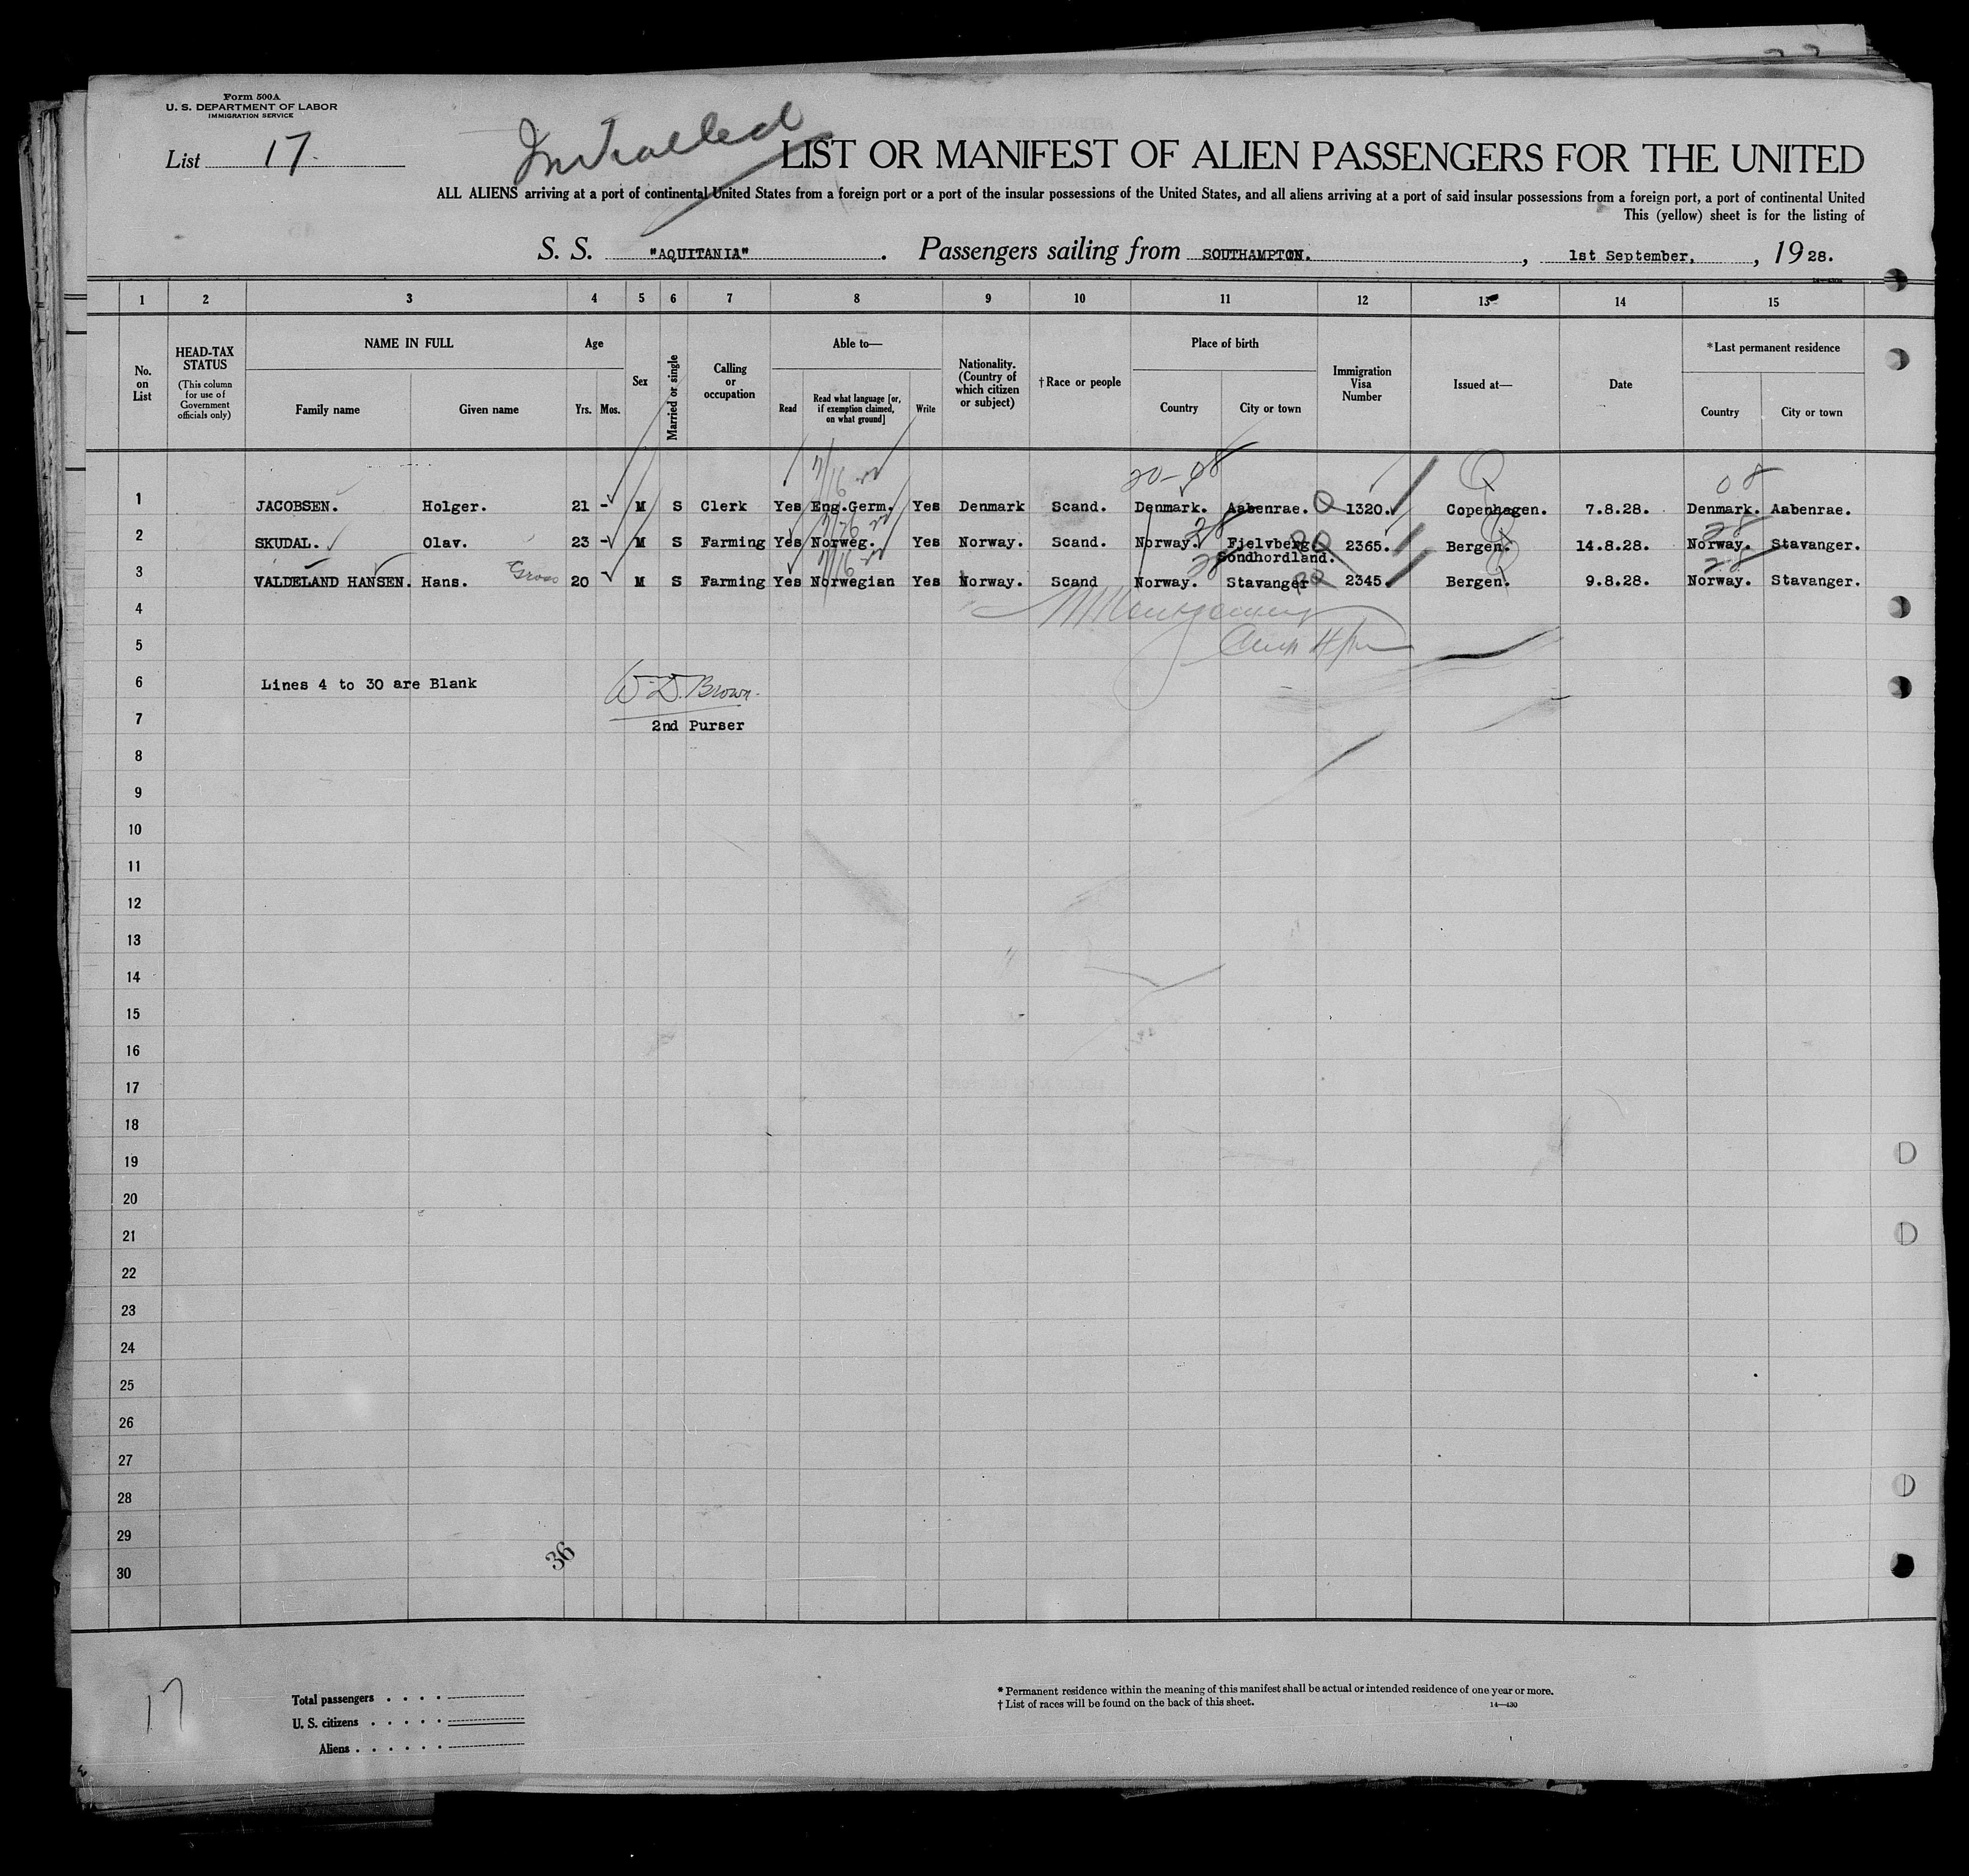 Form 500A
U. S. DEPARTMENT OF LABOR
IMMIGRATION SERVICE
List 17.
LIST OR MANIFEST OF ALIEN PASSENGERS FOR THE UNITED
ALL ALIENS arriving at a port of continental United States from a foreign port or a port of the insular possessions of the United States, and all aliens arriving at a port of said insular possessions from a foreign port, a port of continental United
This (yellow) sheet is for the listing of
S. S. "AQUITANIA". Passengers sailing from SOUTHAMPTON., 1st September,, 1928.
1 2 3 4 5 6 7 8 9 10 11 12 13 14 15
No. on List
HEAD-TAX STATUS
(This column for use of Government officials only)
NAME IN FULL
Family name Given name
Age
Yrs. Mos.
Sex
Married or single
Calling or occupation
Able to—
Read
Read what language [or, if exemption claimed, on what ground]
Write
Nationality. (Country of which citizen or subject)
†Race or people
Place of birth
Country City or town
Immigration Visa Number
Issued at—
Date
*Last permanent residence
Country City or town
20-08 08
1 JACOBSEN. Holger. 21 - M S Clerk Yes Eng.Germ. Yes Denmark Scand. Denmark. Aabenrae. Q 1320. Copenhagen. 7.8.28. Denmark. Aabenrae.
2 SKUDAL. Olav. 23 - M S Farming Yes Norweg. Yes Norway. Scand. Norway. Fjelvberg. Sondhordland. 2365. Bergen. 14.8.28. Norway. Stavanger.
3 VALDELAND HANSEN. Hans. 20 M S Farming Yes Norwegian Yes Norway. Scand Norway. Stavanger 2345. Bergen. 9.8.28. Norway. Stavanger.
4
5
6 Lines 4 to 30 are Blank W. D. Brown.
7 2nd Purser
8
9
10
11
12
13
14
15
16
17
18
19
20
21
22
23
24
25
26
27
28
29
30
36
17
Total passengers
U. S. citizens
Aliens
* Permanent residence within the meaning of this manifest shall be actual or intended residence of one year or more.
† List of races will be found on the back of this sheet. 14—430